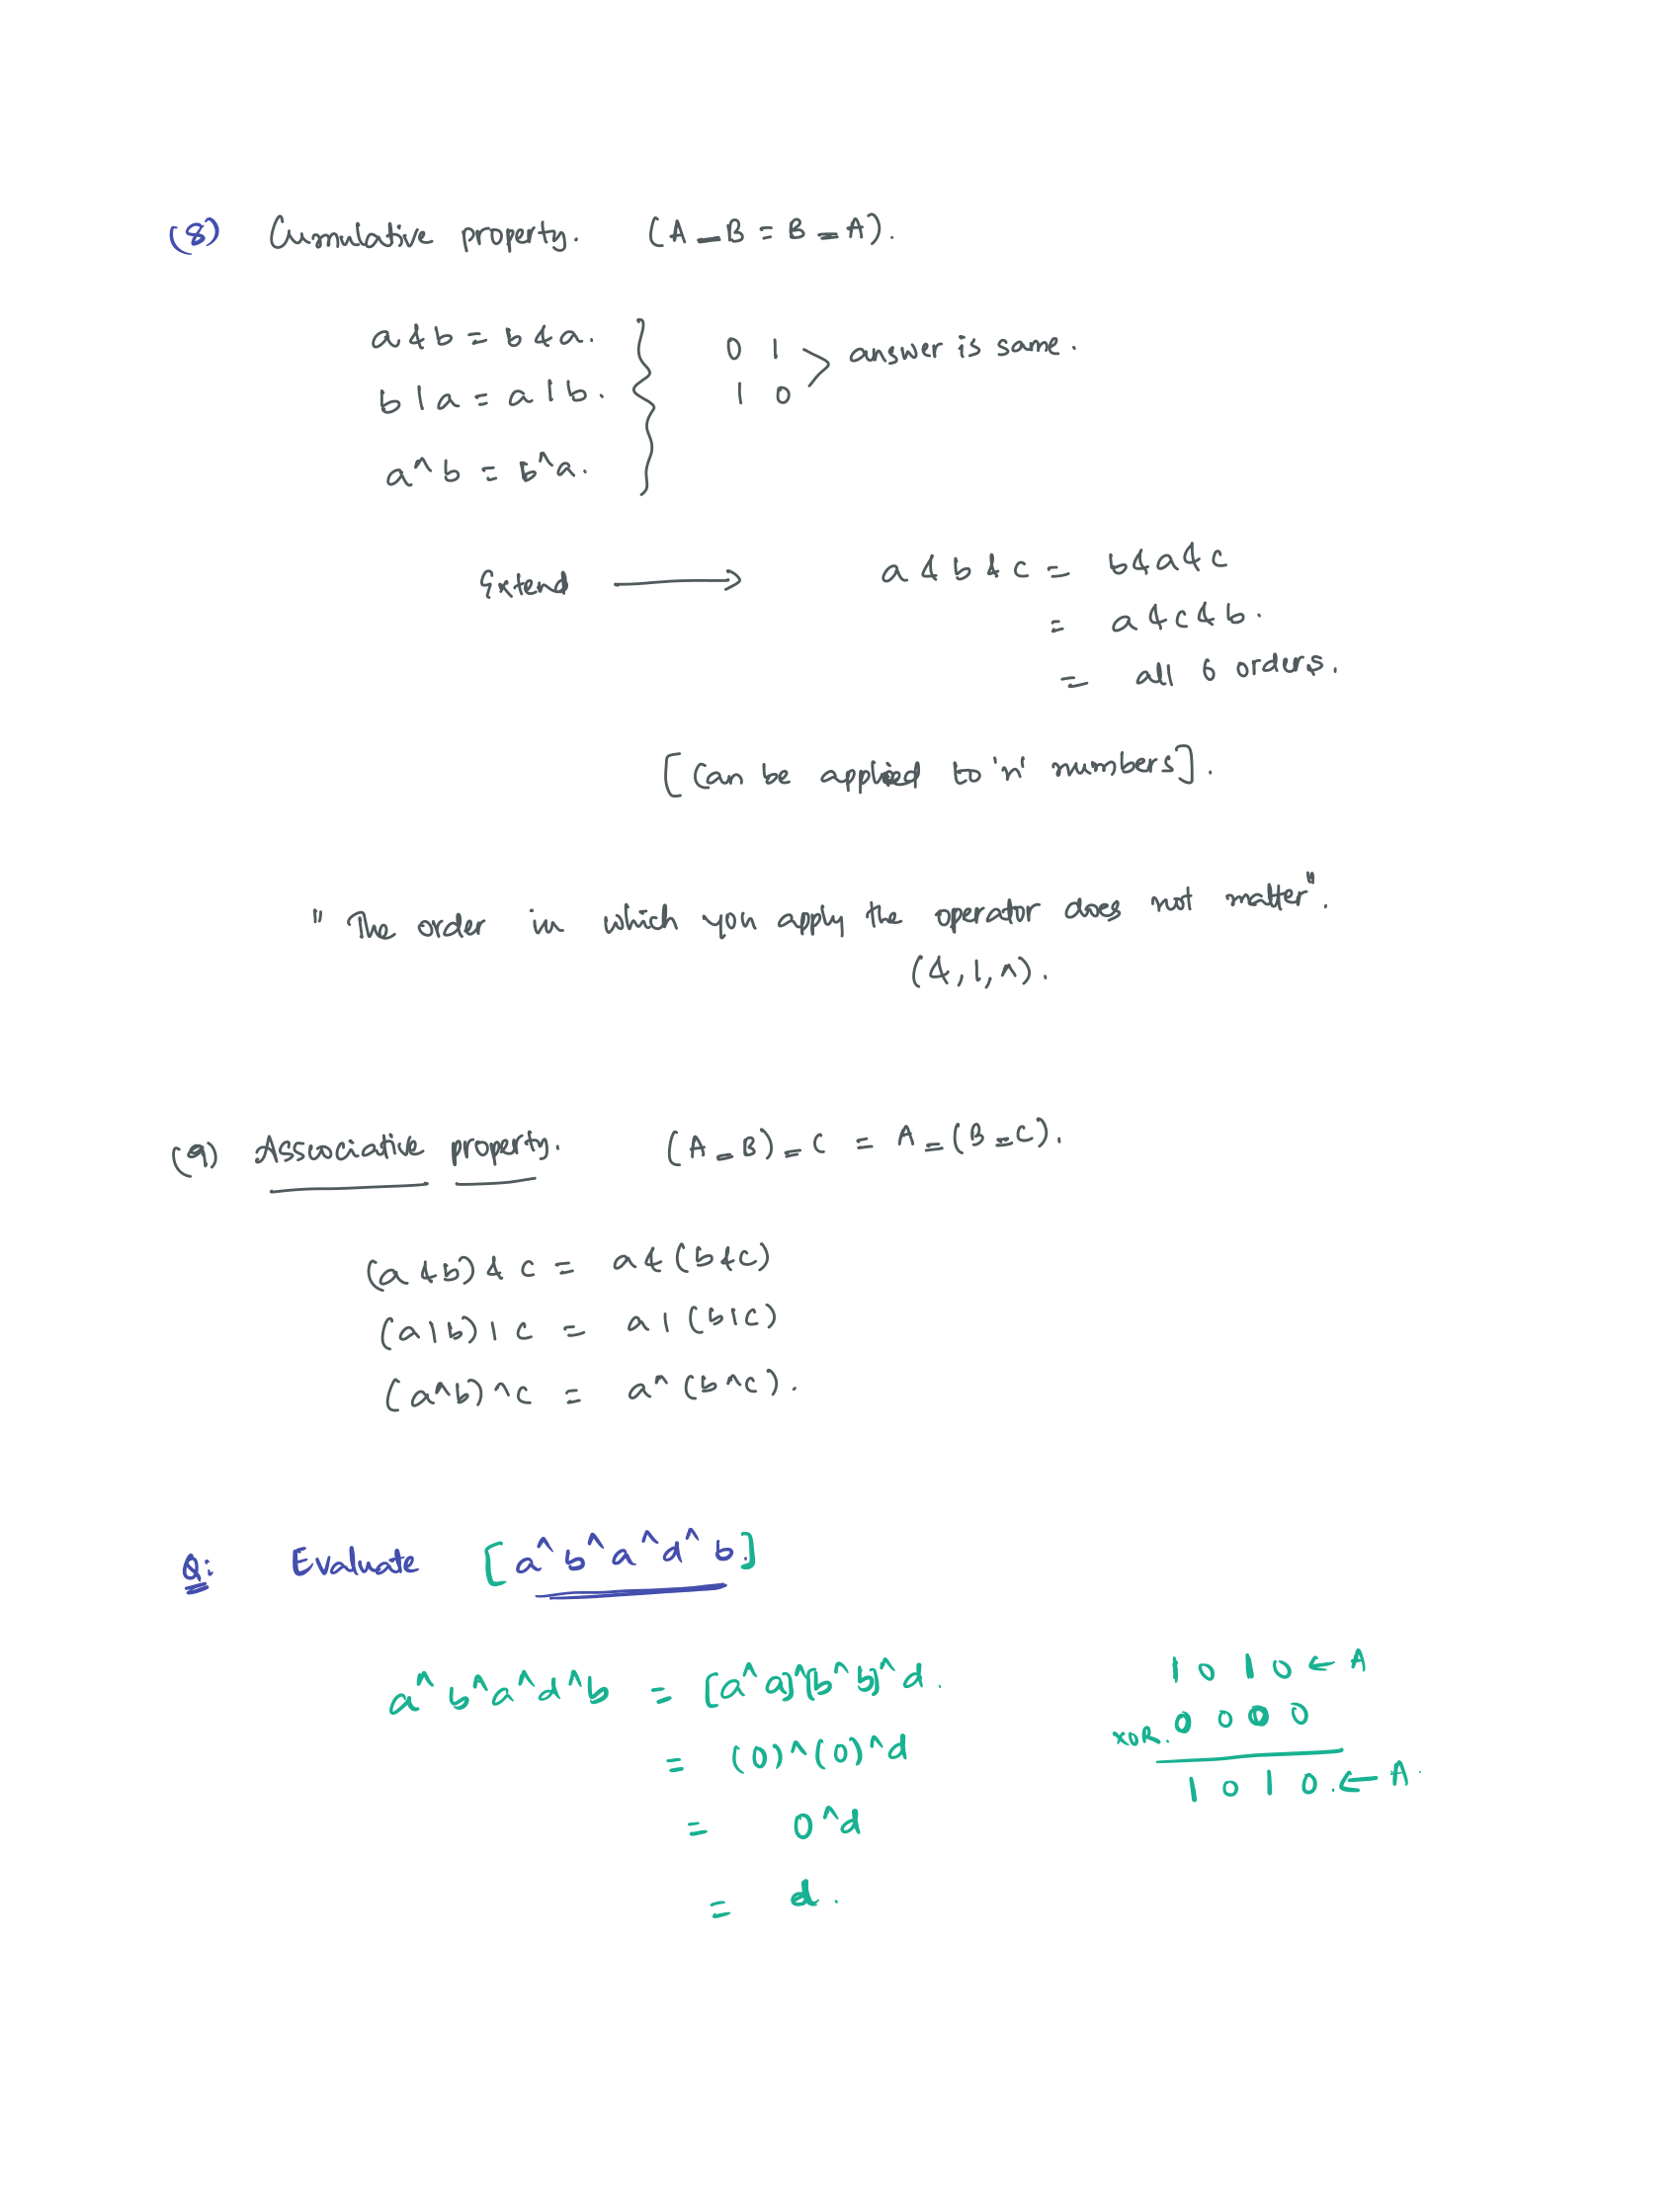 (8) Cummulative property. (A _ B = B _ A).
a & b = b & a.
b | a = a | b.
a ^ b = b ^ a.
0 1
1 0
answer is same.
Extend → a & b & c = b & a & c
= a & c & b.
= all 6 orders.
[Can be applied to 'n' numbers].
" The order in which you apply the operator does not matter".
(&, |, ^).
(9) Asscociative property. (A _ B) _ C = A _ (B _ C).
(a & b) & c = a & (b & c)
(a | b) | c = a | (b | c)
(a ^ b) ^ c = a ^ (b ^ c).
Q: Evaluate [a ^ b ^ a ^ d ^ b.]
a ^ b ^ a ^ d ^ b = [a ^ a] ^ [b ^ b] ^ d.
= (0) ^ (0) ^ d
= 0 ^ d
= d.
1 0 1 0 ← A
XOR. 0 0 0 0
1 0 1 0. ← A.